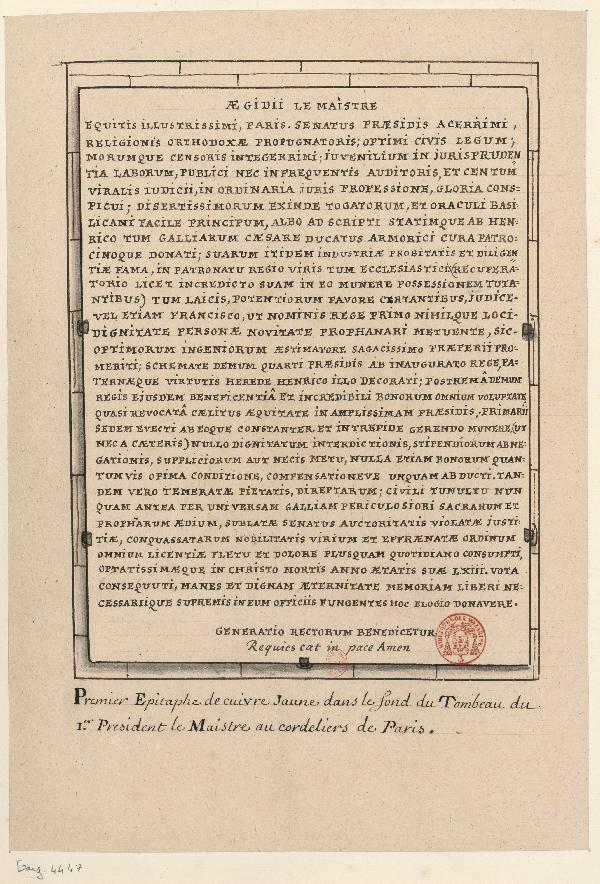 ÆGIDII LE MAISTRE
EQUITIS ILLUSTRISSIMI, PARIS. SENATUS PRÆSIDIS ACERRIMI,
RELIGIONIS ORTHODOXÆ PROPUGNATORIS; OPTIMI CIVIS LEGUM;
MORUMQUE CENSORIS INTEGERRIMI; IUVENILIUM IN JURISPRUDEN
TIA LABORUM, PUBLICI NEC INFREQUENTIS AUDITORIS, ET CENTUM
VIRALIS IUDICII, IN ORDINARIA JURIS PROFESSIONE, GLORIA CONS-
PICUI; DISERTISSIMORUM EXINDE TOGATORUM, ET ORACULI BASI-
LICANI FACILE PRINCIPUM, ALBO AD SCRIPTI STATIMQUE AB HEN-
RICO TUM GALLIARUM CÆSARE DUCATUS ARMORICI CURA PATRO-
CINOQUE DONATI; SUARUM ITIDEM INDUSTRIÆ PROBITATIS ET DILIGEN
TIÆ FAMA, IN PATRONATU REGIO VIRIS TUM ECCLESIASTICIS (RECUPERA-
TORIO LICET INCREDICTO SUAM IN EO MUNERE POSSESSIONEM TUTA-
NTIBUS) TUM LAICIS, POTENTIORUM FAVORE CERTANTIBUS, JUDICE-
VEL ETIAM FRANCISCO, UT NOMINIS REGE PRIMO NIHILQUE LOCI-
DIGNITATE PERSONÆ NOVITATE PROPHANARI METUENTE, SIC-
OPTIMORUM INGENIORUM ÆSTIMATORE SAGACISSIMO PRÆFERII PRO-
MERITI; SCHEMATE DEMUM QUARTI PRÆSIDIS AB INAUGURATO REGE, PA-
TERNÆQUE VIRTUTIS HEREDE HENRICO ILLO DECORATI; POSTREMÂ DEMUM
REGIS EJUSDEM BENEFICENTIÂ ET INCREDIBILI BONORUM OMNIUM VOLUPTATE
QUASI REVOCATÂ CÆLITUS ÆQUITATE IN AMPLISSIMAM PRÆSIDIS, PRIMARII
SEDEM EVECTI AB EOQUE CONSTANTER ET INTREPIDE GERENDO MUNERE, (UT
NEC A CÆTERIS) NULLO DIGNITATUM INTERDICTIONIS, STIPENDIORUM ABNE-
GATIONIS, SUPPLICIORUM AUT NECIS METU, NULLA ETIAM BONORUM QUAN-
TUMVIS OPIMA CONDITIONE, COMPENSATIONEVE UNQUAM ABDUCTI. TAN-
DEM VERO TEMERATÆ PIETATIS, DIREPTARUM; CIVILI TUMULTU NUN
QUAM ANTEA PER UNIVERSAM GALLIAM PERICULOSIORI SACRARUM ET
PROPHARUM ÆDIUM, SUBLATÆ SENATUS AUCTORITATIS VIOLATÆ JUSTI-
TIÆ, CONQUASSATARUM NOBILITATIS VIRIUM ET EFFRÆNATÆ ORDINUM
OMNIUM LICENTIÆ FLETU ET DOLORE PLUSQUAM QUOTIDIANO CONSUMPTI,
OPTATISSIMÆQUE IN CHRISTO MORTIS ANNO ÆTATIS SUÆ LXIII. VOTA
CONSEQUUTI, MANES ET DIGNAM ÆTERNITATE MEMORIAM LIBERI NE-
CESSARIIQUE SUPREMIS IN EUM OFFICIIS FUNGENTES HOC ELOGIO DONAVERE.
GENERATIO RECTORUM BENEDICETUR
Requies cat in pace Amen
Premier Epitaphe de cuivre Jaune dans le fond du Tombeau du
1.er President le Maistre au cordeliers de Paris.
4447